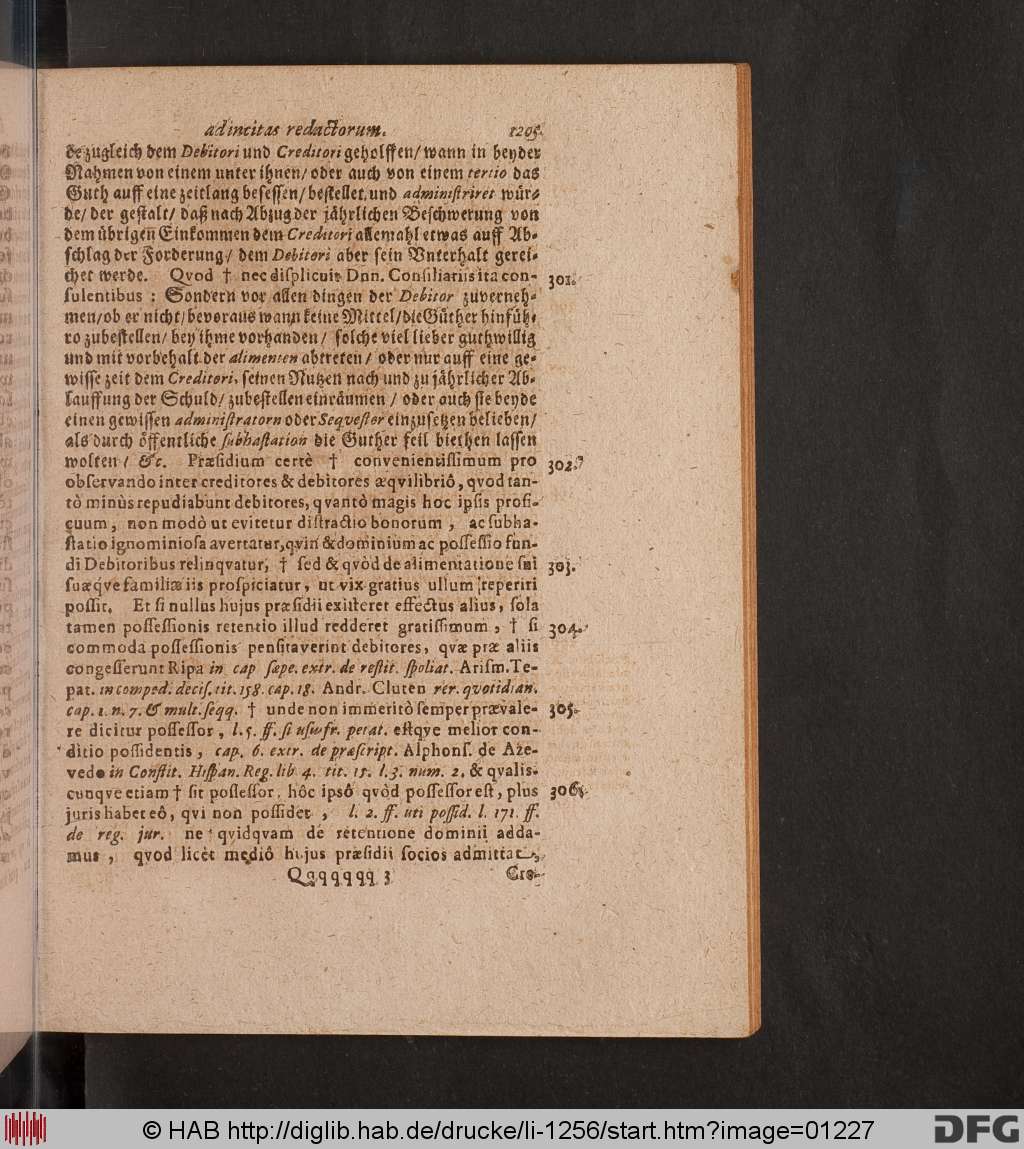 ad incitas redactorum. 1205.
de zugleich dem Debitori und Creditori geholffen/ wann in beyder
Nahmen von einem unter ihnen/ oder auch von einem tertio das
Guth auff eine zeitlang besessen/ bestellet und administriret wür-
de/ der gestalt/ daß nach Abzug der jährlichen Beschwerung von
dem übrigen Einkommen dem Creditori allemahl etwas auff Ab-
schlag der Forderung/ dem Debitori aber sein Vnterhalt gerei-
chet werde. Qvod † nec displicuit Dnn. Consiliariis ita con- 301.
sulentibus: Sondern vor allen dingen der Debitor zuverneh-
men/ ob er nicht/ bevoraus wann keine Mittel/ die Güther hinfüh-
ro zubestellen/ bey ihme vorhanden/ solche viel lieber guthwillig
und mit vorbehalt der alimenten abtreten/ oder nur auff eine ge-
wisse zeit dem Creditori, seinen Nutzen nach und zu jährlicher Ab-
lauffung der Schuld/ zubestellen einräumen/ oder auch sie beyde
einen gewissen administratorn oder Seqvester einzusetzen belieben/
als durch öffentliche subhastation die Guther feil biethen lassen
wolten/ &c. Præsidium certè † convenientissimum pro 302.
observando inter creditores & debitores æqvilibriô, qvod tan-
tò minùs repudiabunt debitores, qvantò magis hoc ipsis profi-
cuum, non modò ut evitetur distractio bonorum, ac subha-
statio ignominiosa avertatur, qvin & dominium ac possessio fun-
di Debitoribus relinqvatur, † sed & qvòd de alimentatione sui 303.
suæqve familiæ iis prospiciatur, ut vix gratius ullum reperiri
possit. Et si nullus hujus præsidii existeret effectus alius, sola
tamen possessionis retentio illud redderet gratissimum, † si 304.
commoda possessionis pensitaverint debitores, qvæ præ aliis
congesserunt Ripa in cap sæpe. extr. de restit. spoliat. Arism. Te-
pat. in comped. decis. tit. 158. cap. 18. Andr. Cluten rer. qvotidian.
cap. 1. n. 7. & mult. seqq. † unde non immeritò semper prævale- 305.
re dicitur possessor, l. 5. ff. si usufr. petat. estqve melior con-
ditio possidentis, cap. 6. extr. de præscript. Alphons. de Aze-
vedo in Constit. Hispan. Reg. lib 4. tit. 15. l. 3. num. 2. & qvalis-
cunqve etiam † sit possessor, hôc ipsô qvòd possessor est, plus 306.
juris habet eô, qvi non possidet, l. 2. ff. uti possid. l. 171. ff.
de reg. jur. ne qvidqvam de retentione dominii adda-
mus, qvod licèt mediô hujus præsidii socios admittat,
Qqqqqqq 3 Cre-
© HAB http://diglib.hab.de/drucke/li-1256/start.htm?image=01227
DFG